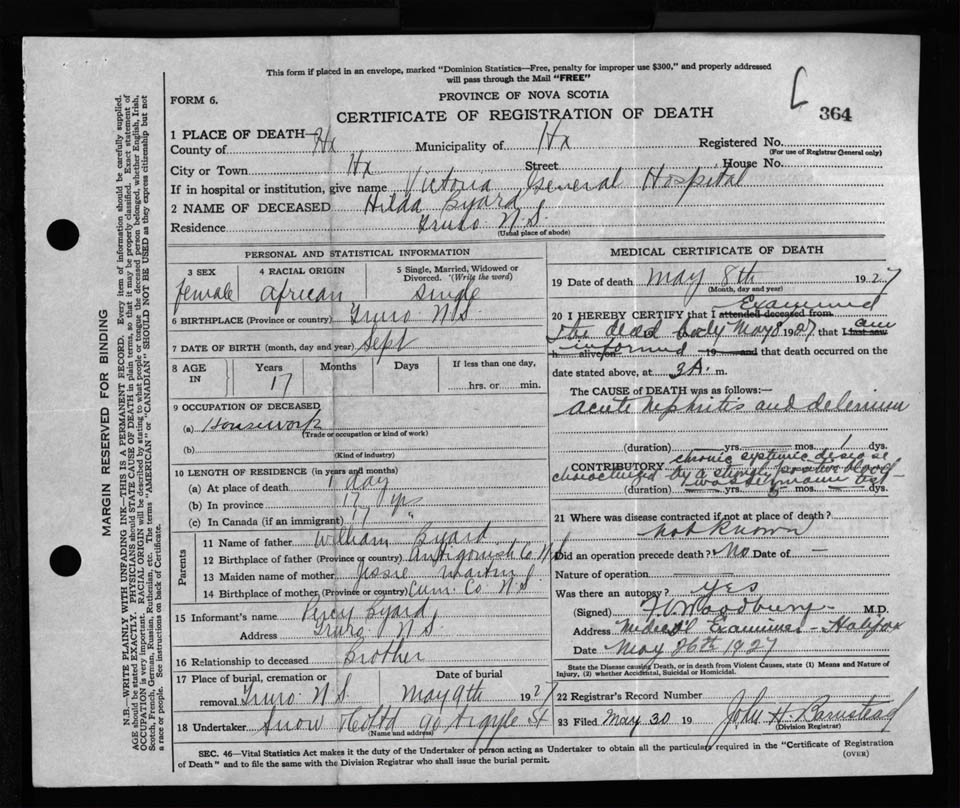 This form if placed in an envelope, marked "Dominion Statistics—Free, penalty for improper use $300," and properly addressed
will pass through the Mail "FREE"
FORM 6.
PROVINCE OF NOVA SCOTIA
CERTIFICATE OF REGISTRATION OF DEATH
364
1 PLACE OF DEATH—
County of Hx Municipality of Hx Registered No.
(For use of Registrar General only)
City or Town Hx Street House No.
If in hospital or institution, give name Victoria General Hospital
2 NAME OF DECEASED Hilda Byard
Residence Truro N.S.
(Usual place of abode)
PERSONAL AND STATISTICAL INFORMATION
3 SEX 4 RACIAL ORIGIN 5 Single, Married, Widowed or Divorced. (Write the word)
female African single
6 BIRTHPLACE (Province or country) Truro N.S.
7 DATE OF BIRTH (month, day and year) Sept
8 AGE IN Years Months Days If less than one day,
17 hrs. or min.
9 OCCUPATION OF DECEASED
(a) Housework
(Trade or occupation or kind of work)
(b)
(Kind of industry)
10 LENGTH OF RESIDENCE (in years and months)
(a) At place of death 1 day
(b) In province 17 yrs
(c) In Canada (if an immigrant) 17 "
Parents
11 Name of father William Byard
12 Birthplace of father (Province or country) Antigonish Co. N.S.
13 Maiden name of mother Jessie Martin
14 Birthplace of mother (Province or Country) Cum. Co. N.S.
15 Informant's name Percy Byard
Address Truro N.S.
16 Relationship to deceased Brother
17 Place of burial, cremation or removal Truro N.S. Date of burial May 9th 1927
18 Undertaker Snow & Co Ltd 90 Argyle St
(Name and address)
MEDICAL CERTIFICATE OF DEATH
19 Date of death May 8th 1927
(Month, day and year)
Examined
20 I HEREBY CERTIFY that I attended deceased from
the dead body May 8 1927 that I last saw am
informed
h alive on 19 and that death occurred on the
date stated above, at 3 A. m.
The CAUSE of DEATH was as follows:—
Acute nephritis and delerium
(duration) yrs. mos. 1 dys.
CONTRIBUTORY chronic systemic disease
characterized by a strongly positive blood
Wassermann test
(duration) yrs. mos. dys.
21 Where was disease contracted if not at place of death?
not known
Did an operation precede death? No Date of —
Nature of operation
Was there an autopsy? yes
(Signed) Woodbury M.D.
Address Medical Examiner - Halifax
Date May 26th 1927
State the Disease causing Death, or in death from Violent Causes, state (1) Means and Nature of
Injury, (2) whether Accidental, Suicidal or Homicidal.
22 Registrar's Record Number
23 Filed May 30 19 John H Barnstead
(Division Registrar)
SEC. 46—Vital Statistics Act makes it the duty of the Undertaker or person acting as Undertaker to obtain all the particulars required in the "Certificate of Registration
of Death" and to file the same with the Division Registrar who shall issue the burial permit.
(OVER)
MARGIN RESERVED FOR BINDING
N.B.—WRITE PLAINLY WITH UNFADING INK—THIS IS A PERMANENT RECORD. Every item of information should be carefully supplied.
AGE should be stated EXACTLY. PHYSICIANS should STATE CAUSE OF DEATH in plain terms, so that it may be properly classified. Exact statement of
OCCUPATION is very important. RACIAL ORIGIN will be described by stating to what people or tongue the deceased person belonged, whether English, Irish,
Scotch, French, German, Russian, Ruthenian, etc. The terms "AMERICAN" or "CANADIAN" SHOULD NOT BE USED as they express citizenship but not
a race or people. See instructions on back of Certificate.